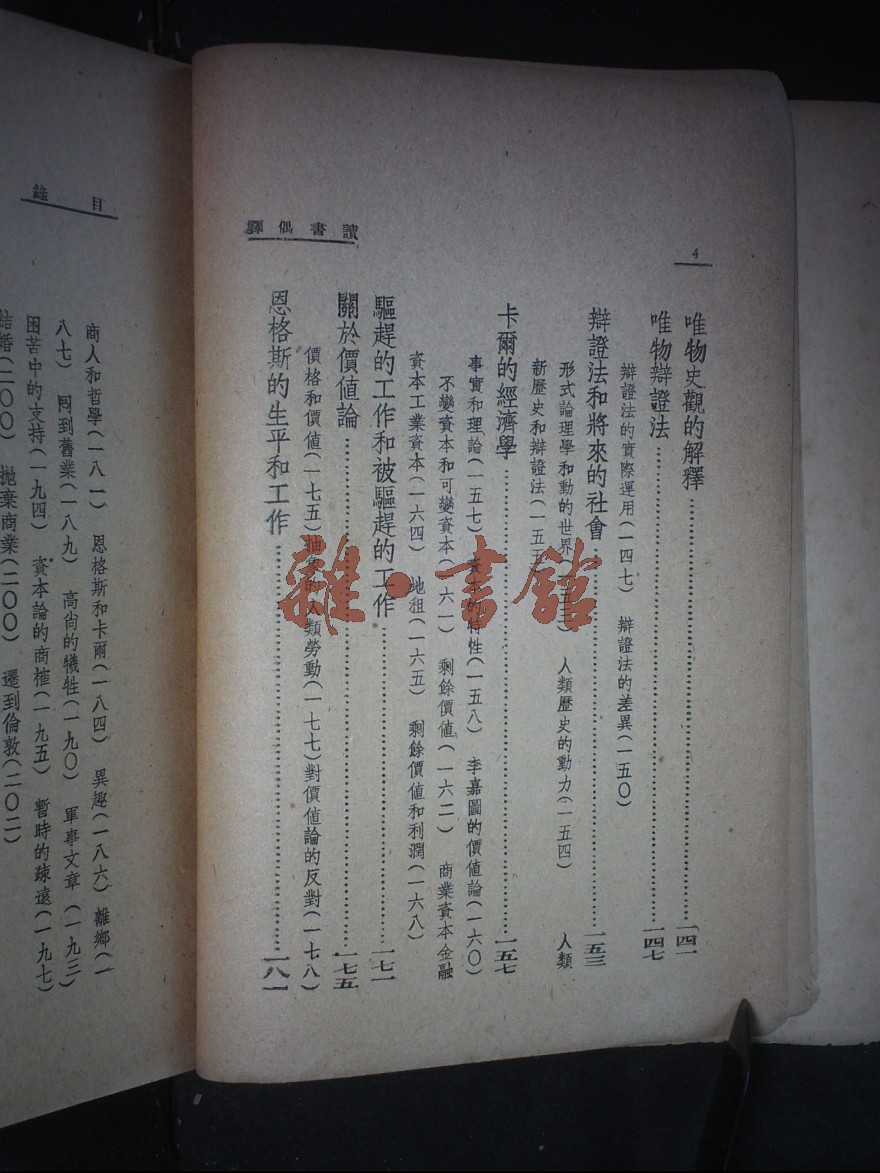 4
讀書偶譯
唯物史觀的解釋……一四一
唯物辯證法……一四七
辯證法的實際運用(一四七) 辯證法的差異(一五〇)
辯證法和將來的社會……一五三
形式論理學和動的世界(一五三) 人類歷史的動力(一五四) 人類
新歷史和辯證法(一五五)
卡爾的經濟學……一五七
事實和理論(一五七) 資本的特性(一五八) 李嘉圖的價値論(一六〇)
不變資本和可變資本(一六一) 剩餘價値(一六二) 商業資本金融
資本工業資本(一六四) 地租(一六五) 剩餘價値和利潤(一六八)
驅趕的工作和被驅趕的工作……一七一
關於價値論……一七五
價格和價値(一七五)抽象的人類勞動(一七七)對價値論的反對(一七八)
恩格斯的生平和工作……一八一
目錄
商人和哲學(一八一) 恩格斯和卡爾(一八四) 異趣(一八六) 離鄉(一
八七) 回到舊業(一八九) 高尚的犧牲(一九〇) 軍事文章(一九三)
困苦中的支持(一九四) 資本論的商榷(一九五) 暫時的疎遠(一九七)
結婚(二〇〇) 拋棄商業(二〇〇) 遷到倫敦(二〇二)
雜·書館